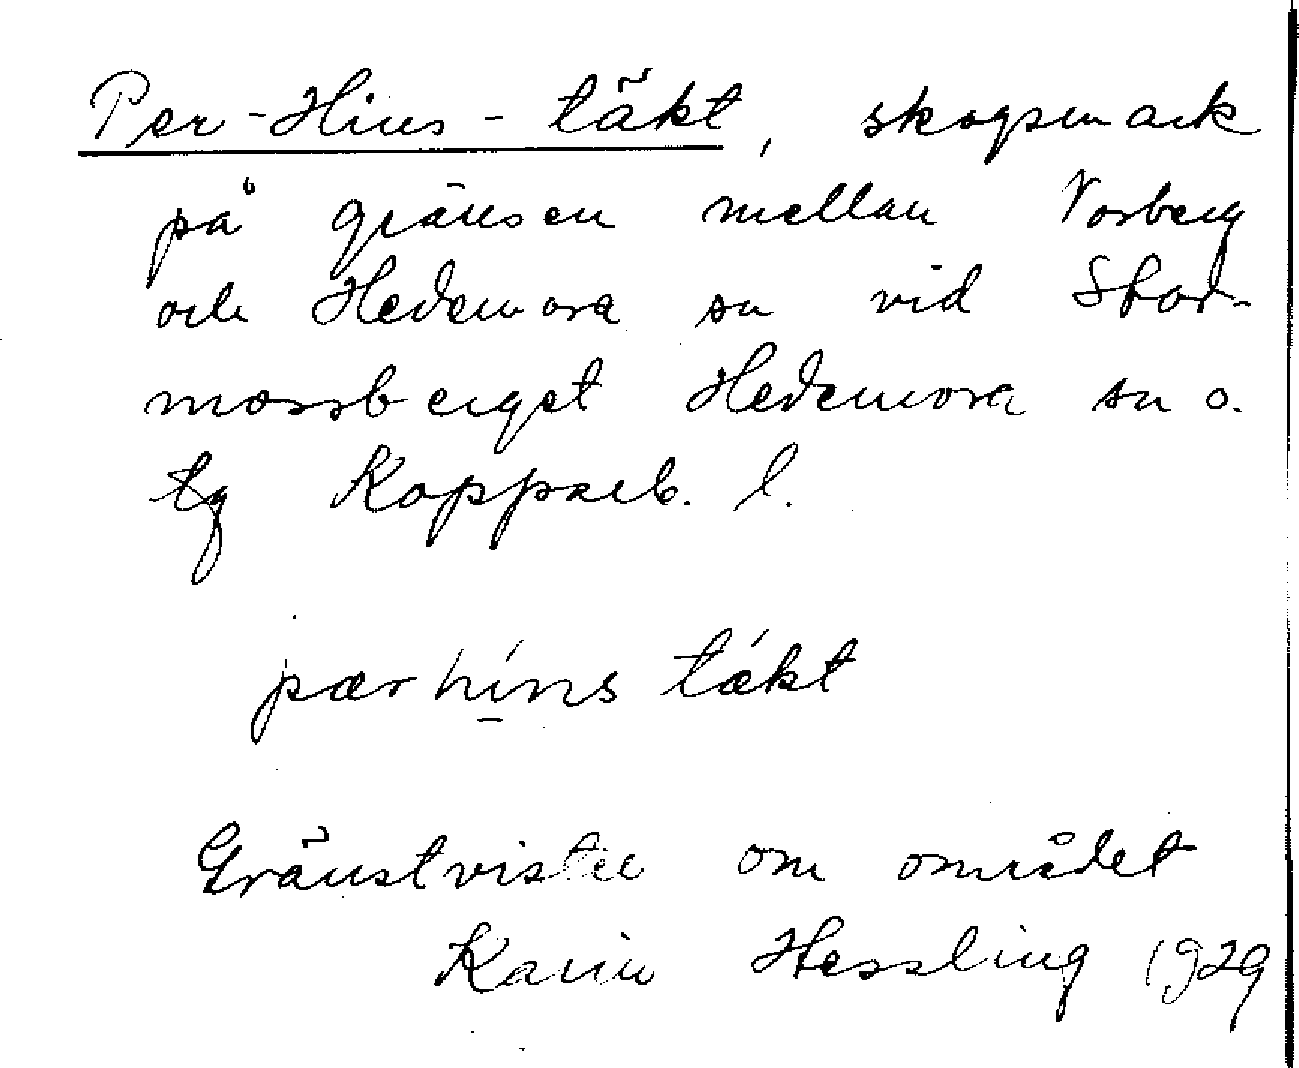 Per-Hins-täkt, skogsmark
på gränsen mellan Norberg
och Hedemora sn vid Stor-
mossberget Hedemora sn o.
tg Kopparb. l.
pær híns tækt
Gränstvister om området
Karin Hessling 1929